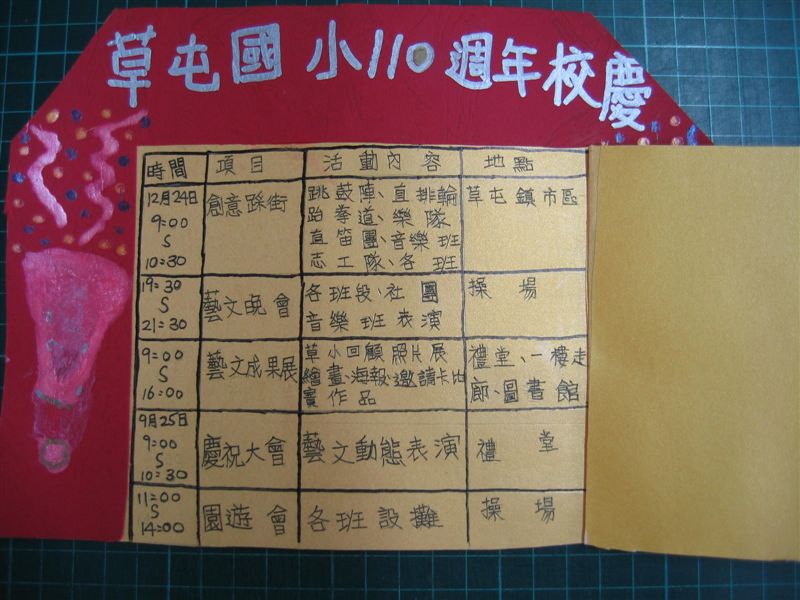 草屯國小110週年校慶
時間 項目 活動內容 地點
12月24日 9:00 S 10:30
創意踩街
跳鼓陣、直排輪
跆拳道、樂隊
直笛團、音樂班
志工隊、各班
草屯鎮市區
19:30 S 21:30
藝文晚會
各班段、社團
音樂班表演
操場
9:00 S 16:00
藝文成果展
草小回顧照片展
繪畫、海報、邀請卡比
賽作品
禮堂、一樓走
廊、圖書館
9月25日 9:00 S 10:30
慶祝大會
藝文動態表演
禮堂
11:00 S 14:00
園遊會
各班設攤
操場